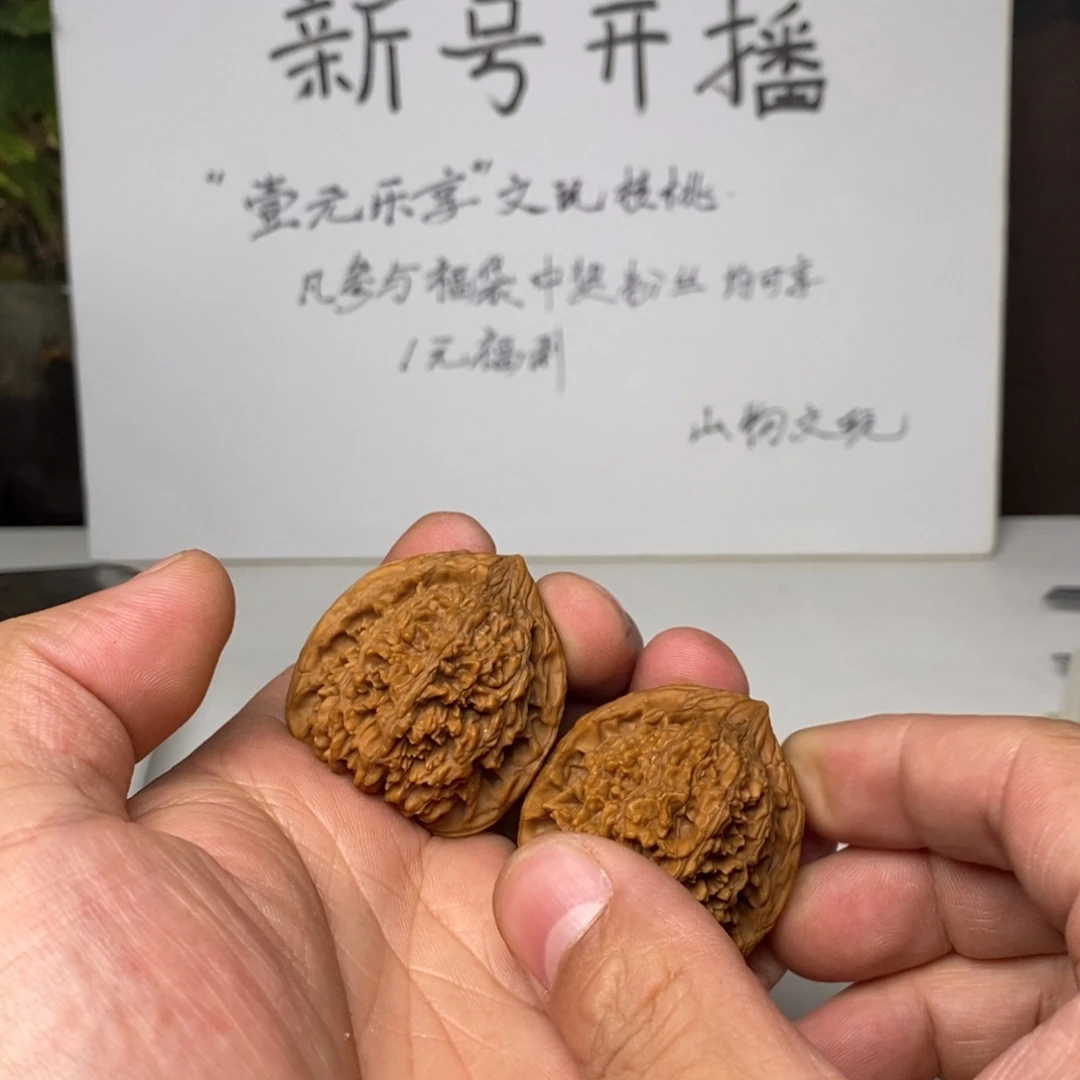 新号开播
“壹元乐享”文玩核桃
凡参与福袋中奖粉丝均可享
1元福利
山物文玩